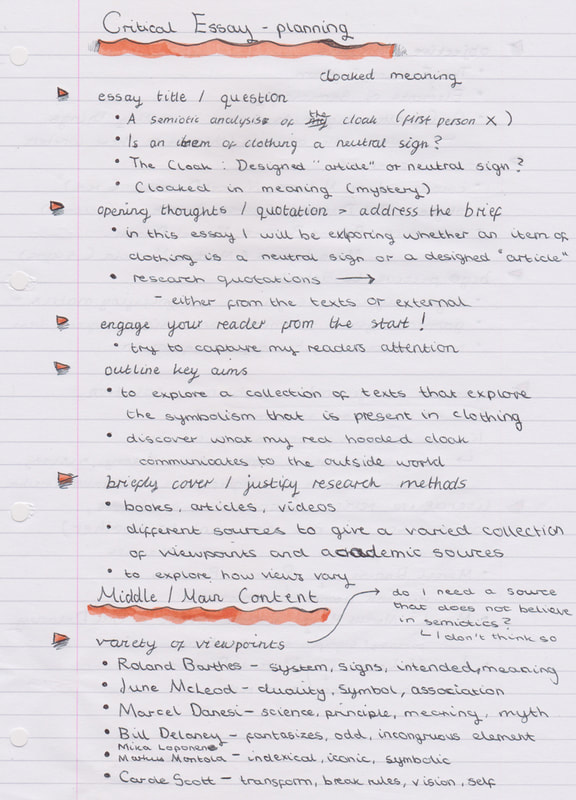 Critical Essay - planning
cloaked meaning
essay title / question
• A semiotic analysis of the cloak (first person X)
• Is an item of clothing a neutral sign?
• The Cloak : Designed "article" or neutral sign?
• Cloaked in meaning (mystery)
opening thoughts / quotation > address the brief
• in this essay I will be exploring whether an item of
clothing is a neutral sign or a designed "article"
• research quotations →
- either from the texts or external
engage your reader from the start!
• try to capture my readers attention
outline key aims
• to explore a collection of texts that explore
the symbolism that is present in clothing
• discover what my red hooded cloak
communicates to the outside world
briefly cover / justify research methods
• books, articles, videos
• different sources to give a varied collection
of viewpoints and academic sources
• to explore how views vary
Middle / Main Content
do I need a source
that does not believe
in semiotics?
I don't think so
variety of viewpoints
• Roland Barthes - system, signs, intended, meaning
• June McLeod - duality, symbol, association
• Marcel Danesi - science, principle, meaning, myth
• Bill Delaney - fantasizes, odd, incongruous element
Mika Loponen &
• Markus Montola - indexical, iconic, symbolic
• Carole Scott - transform, break rules, vision, self